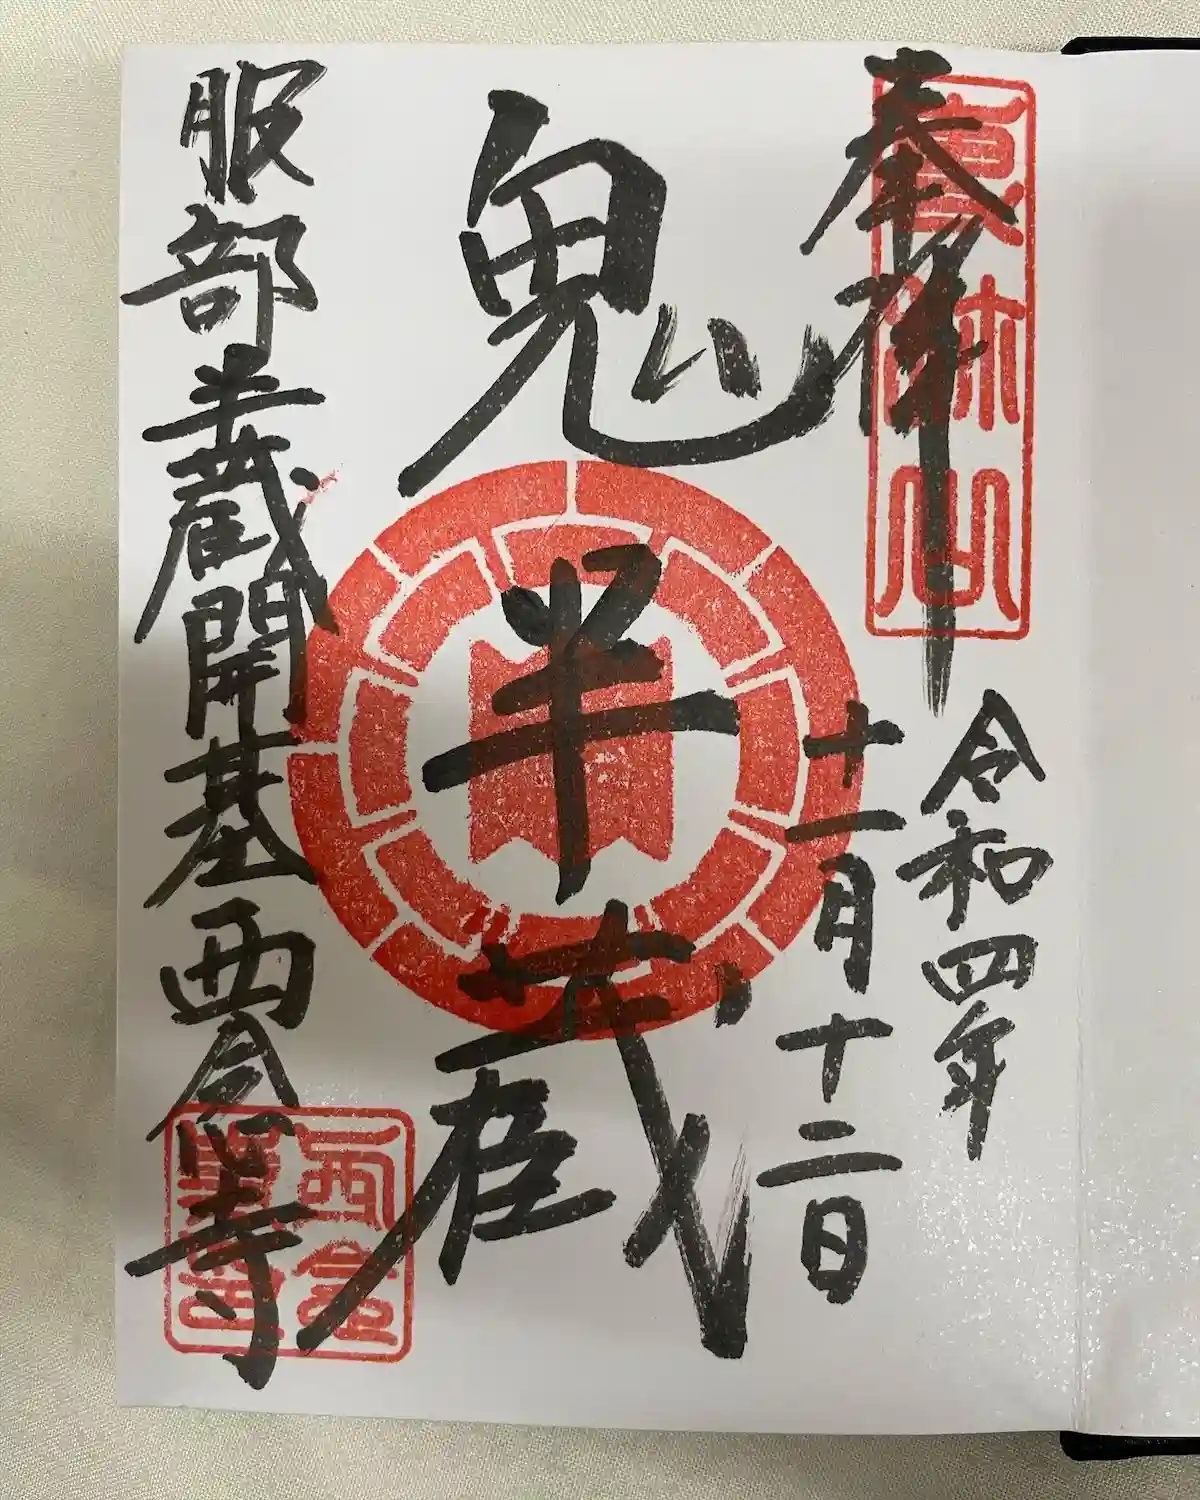 奉拝
専称山
令和四年
十一月十二日
鬼半蔵
服部半蔵開基西念寺
西念